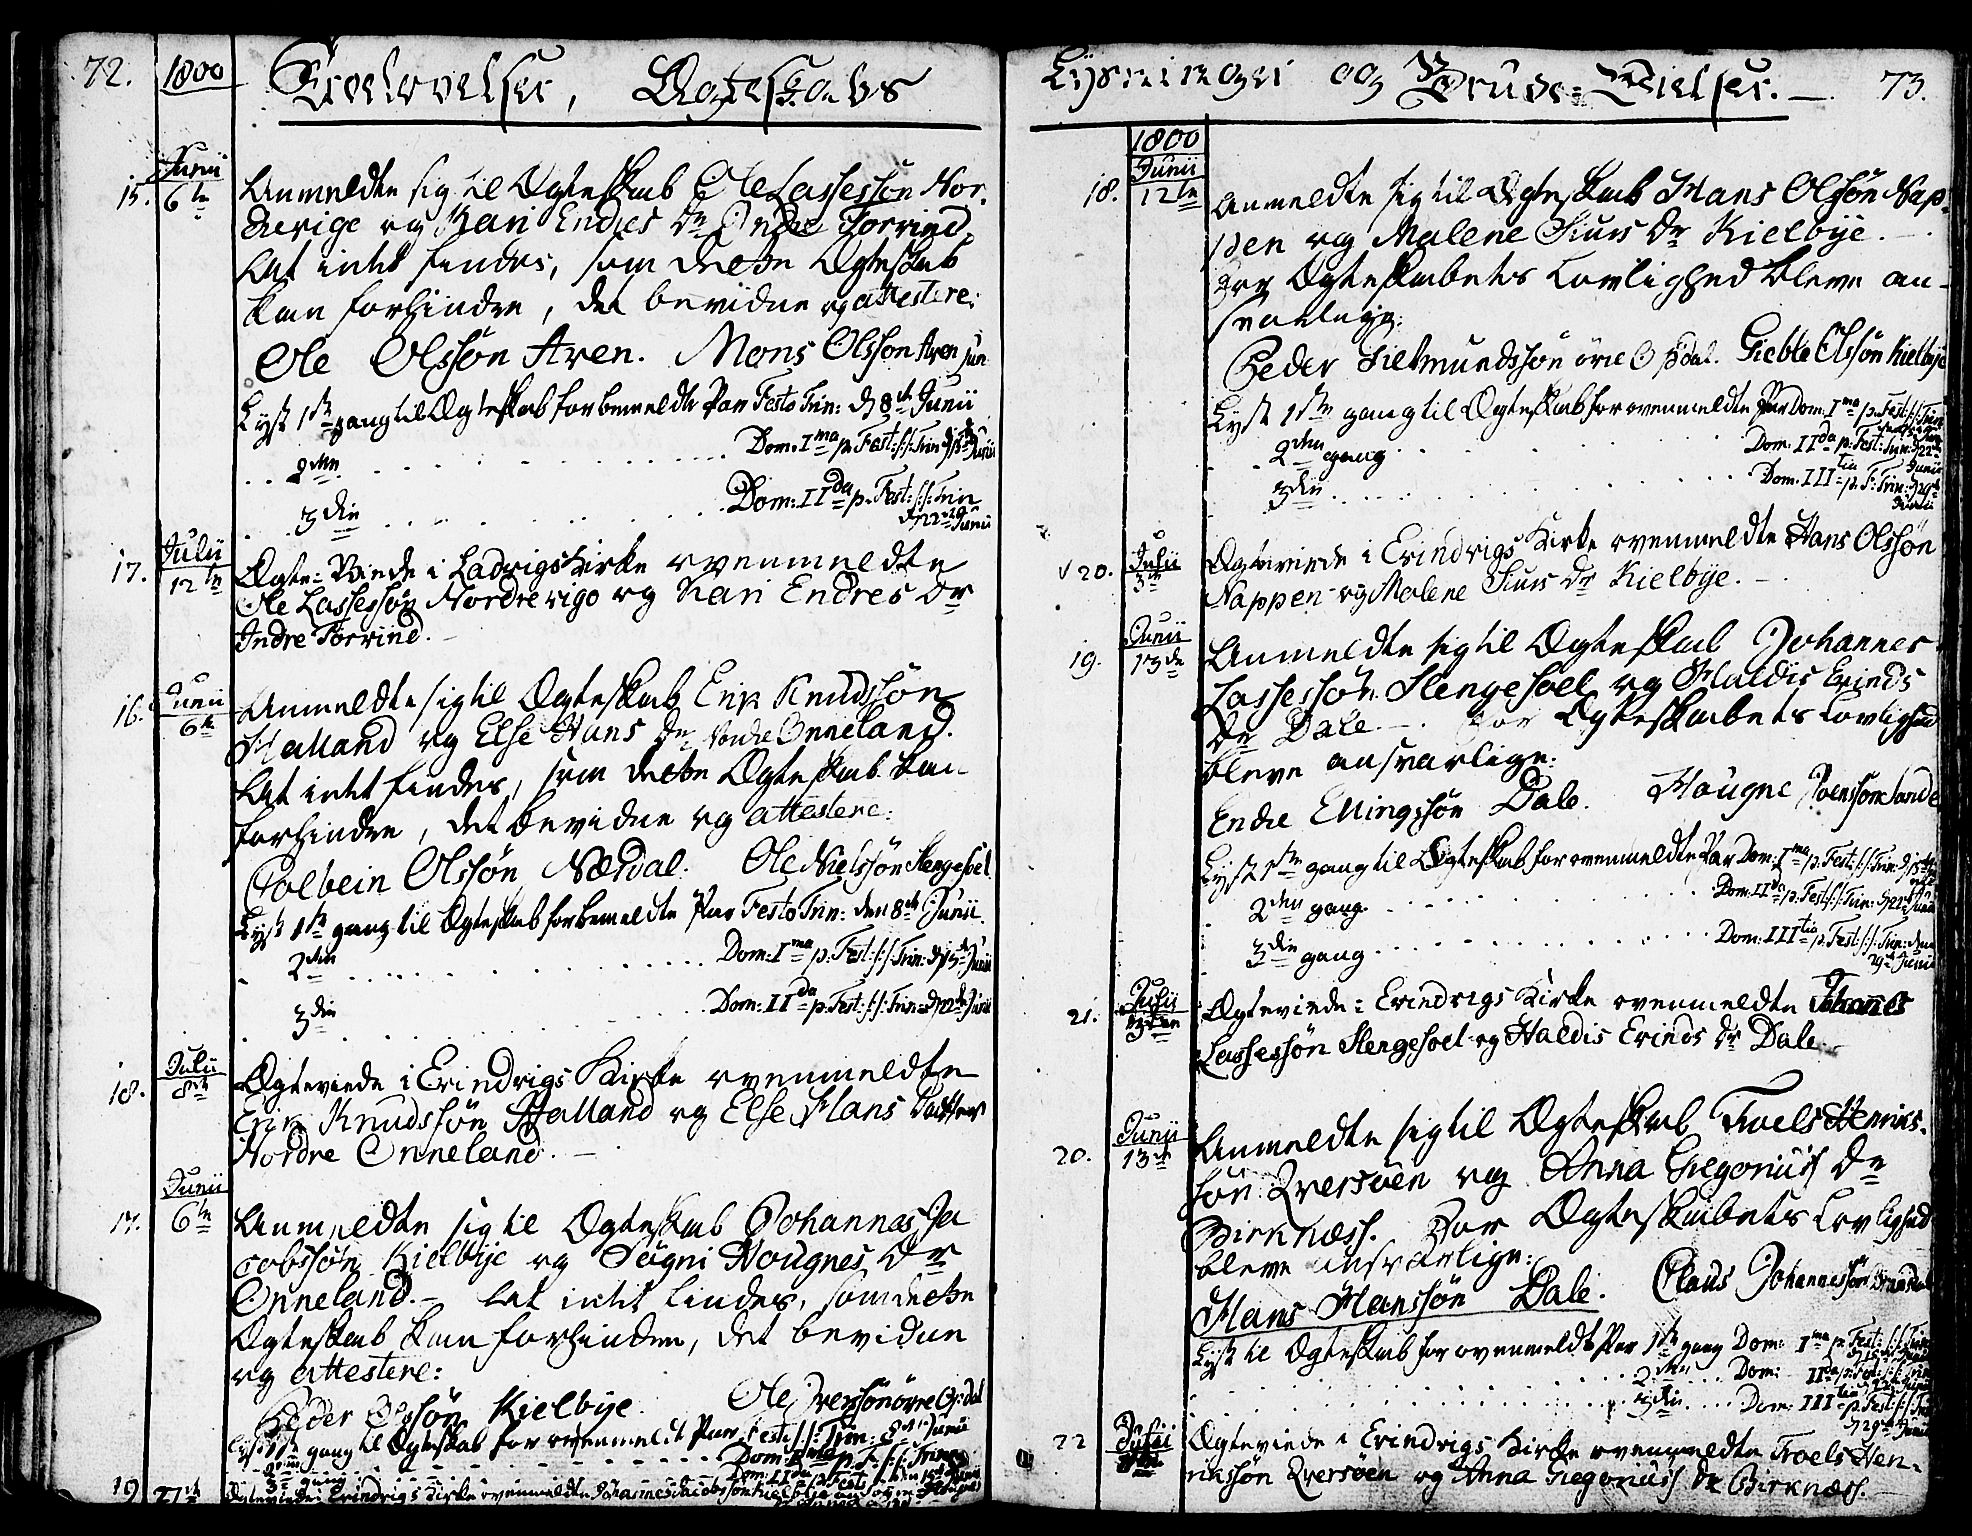 72. 1800 Troelovelser, Ægteskabs
15. Junii 6te Anmeldte sig til Ægteskab Ole Lassessøn Nor-
derige og Kari Endres Dr Indre Torvind,
at intet findes, som dette Ægteskab
kan forhindre, det bevidne og attestere:
Ole Olssøn Aren. Mons Olsson Aren jun
Lyst 1ste gang til Ægteskab for bemeldte Par Festo Trin: d 8de Junii
2den Dom: Ima p. Fest: s:s: Trin d 15de Junii
3die Dom: IIda p. Fest: s:s: Trin
d 22de Junii
17. Julii 12te Ægte-Viede i Ladvigs Kirke ovenmeldte
Ole Lassessøn Nordrevige og Kari Endres Dr
Indre Torvind.
16. Junii 6te Anmeldte sig til Ægteskab Erik Knudssøn
Halland og Else Hans Dr Nordre Onneland.
at intet findes, som dette Ægteskab kan
forhindre, det bevidne og attestere:
Colbein Olssøn Nærdal. Ole Nielssøn Slengesoel
Lyst 1ste gang til Ægteskab for bemeldte Par Festo Trin: den 8de Junii
2den Dom: Ima p. Fest: s:s: Trin: d 15de Junii
3die Dom: IIda p. Fest: s:s: Trin: d 22de Junii
18. Julii 8de Ægteviede i Evindvigs Kirke ovenmeldte
Erik Knudssøn Halland og Else Hans Datter
Nordre Onneland.
17. Junii 6te Anmeldte sig til Ægteskab Johannes Ja
cobssøn Kielbye og Søgni Hougnes Dr
Onneland. at intet findes, som dette
Ægteskab kan forhindre, det bevidne
og attestere:
Peder Olssøn Kielbye. Ole Iverssøn øvre Opdal
Lyst 1ste gang til Ægteskab for ovenmeldte Par Festi s:s: Trin: 8de Junii
2den gang Dom: Ima p. F: s:s: Trin
3die gang Dom: IIda p. Fest:
19 Ægteviede i Evindvigs Kirke ovenmeldte Johannes Jacobssøn Kielbye og Søgni
Lysninger og Brude-Vielser. 73.
1800
18. Junii 12te Anmeldte sig til Ægteskab Hans Olssøn Nap-
pen og Malene Siurs Dr Kielbye.
For Ægteskabets Lovlighed bleve an-
svarlige:
Peder Sielmundssøn øvre Opdal. Gieble Olssøn Kielbye
Lyst 1ste gang til Ægteskab for ovenmeldte Par Dom: Ima p. Fest: s:s: Trin
2den gang Dom: IIda p: Fest: Trin: d 22de
Junii
3die Dom: IIItia p. F: Trin: d 29de
Junii
20. Julii 3de Ægteviede i Evindvigs Kirke ovenmeldte Hans Olssøn
Nappen og Malene Siurs Dr Kielbye.
19. Junii 13de Anmeldte sig til Ægteskab Johannes
Lassessøn Slengesoel og Haldis Erinds
Dr Dale. For Ægteskabets Lovlighed
bleve ansvarlige:
Endre Ellingssøn Dale. Hougne Joenssøn Sande
Lyst 1ste gang til Ægteskab for ovenmeldte Par Dom: Ima p. Fest: s:s: Trin: d 15de
2den gang Dom: IIda p. Fest: s:s: Trin: d 22de Junii
3die gang Dom: IIItia p. Fest: s:s: Trin: den
29de Junii
21. Julii Ægteviede i Evindvigs Kirke ovenmeldte Johannes
Lassessøn Slengesoel og Haldis Erinds Dr Dale.
20. Junii 13de Anmeldte sig til Ægteskab Troels Henrics-
søn Qversøen og Anna Gregoriuss Dr
Birknæss. For Ægteskabets Lovlighed
bleve ansvarlige:
Hans Hanssøn Dale. Claus Johannessøn
Lyst til Ægteskab for ovenmeldte Par 1ste gang Dom: Ima p. Fest: s:s: Trin
2den Dom: IIda p. Fest: s:s: Trin
3die Dom: IIItia p. Fest: s:s: Trin
d 29de Junii
22 Julii Ægteviede i Evindvigs Kirke ovenmeldte Troels Hen-
ricssøn Qversøen og Anna Gregoriuss Dr Birknæss.